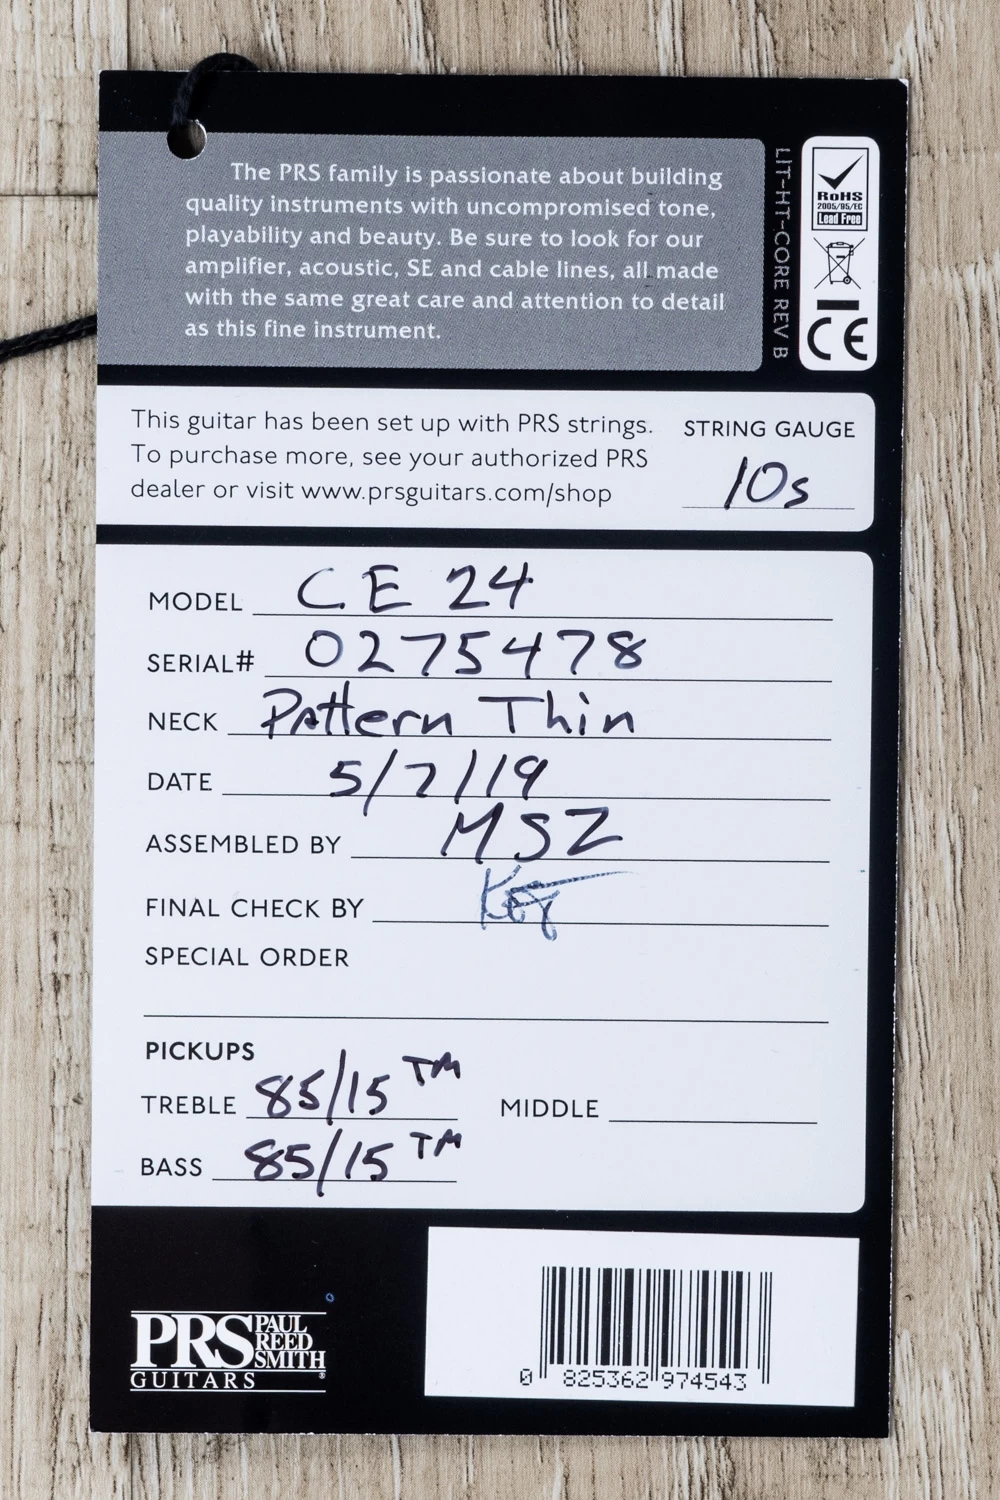 The PRS family is passionate about building
quality instruments with uncompromised tone,
playability and beauty. Be sure to look for our
amplifier, acoustic, SE and cable lines, all made
with the same great care and attention to detail
as this fine instrument.
LIT-HT-CORE REV B
RoHS
2005/95/EC
Lead Free
CE
This guitar has been set up with PRS strings.
To purchase more, see your authorized PRS
dealer or visit www.prsguitars.com/shop
STRING GAUGE
10s
MODEL CE 24
SERIAL# 0275478
NECK Pattern Thin
DATE 5/7/19
ASSEMBLED BY MSZ
FINAL CHECK BY
SPECIAL ORDER
PICKUPS
TREBLE 85/15 TM MIDDLE
BASS 85/15 TM
PRS PAUL REED SMITH
GUITARS
0 825362 974543